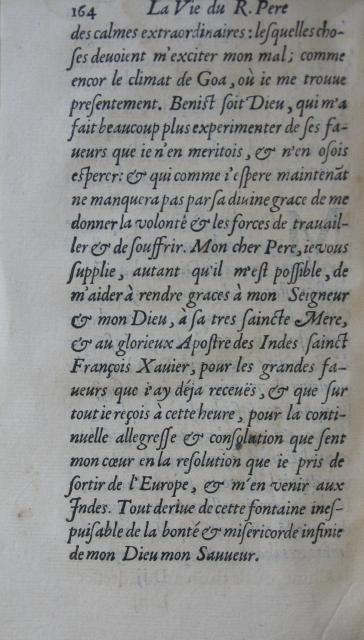 164 La Vie du R. Pere
des calmes extraordinaires: lesquelles cho-
ses deuoient m'exciter mon mal; comme
encor le climat de Goa, où ie me trouue
presentement. Benist soit Dieu, qui m'a
fait beaucoup plus experimenter de ses fa-
ueurs que ie n'en meritois, & n'en osois
esperer: & qui comme i'espere maintenāt
ne manquera pas par sa diuine grace de me
donner la volonté & les forces de trauail-
ler & de souffrir. Mon cher Pere, ie vous
supplie, autant qu'il m'est possible, de
m'aider à rendre graces à mon Seigneur
& mon Dieu, à sa tres saincte Mere,
& au glorieux Apostre des Indes sainct
François Xauier, pour les grandes fa-
ueurs que i'ay déja receuës, & que sur
tout ie reçois à cette heure, pour la conti-
nuelle allegresse & consolation que sent
mon cœur en la resolution que ie pris de
sortir de l'Europe, & m'en venir aux
Indes. Tout deriue de cette fontaine ines-
puisable de la bonté & misericorde infinie
de mon Dieu mon Sauueur.